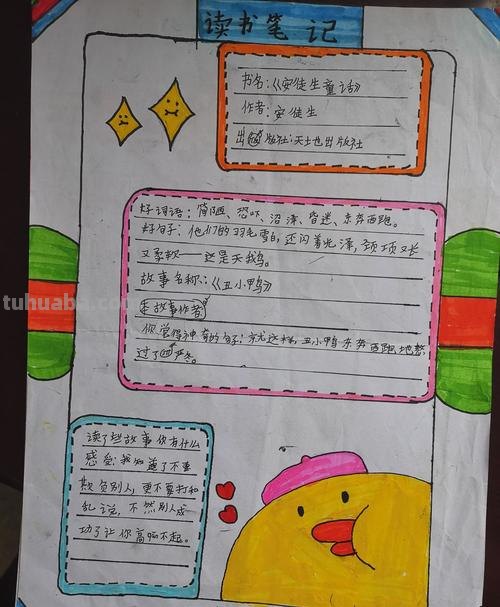 读书笔记
书名:《安徒生童话》
作者:安徒生
出版社:天土也出版社
好词语:简陋、恐吓、沼泽、昏迷、东奔西跑。
好句子:他们的羽毛雪白,还闪着光泽,颈项又长
又柔软——这是天鹅。
故事名称:《丑小鸭》
故事作者
你觉得神奇的句子:就这样,丑小鸭东奔西跑地熬
过了严冬。
读了些故事你有什么
感受:我知道了不要
欺负别人,更不要打和
乱说,不然别人成
功了让你高攀不起。
tuhuaba.com